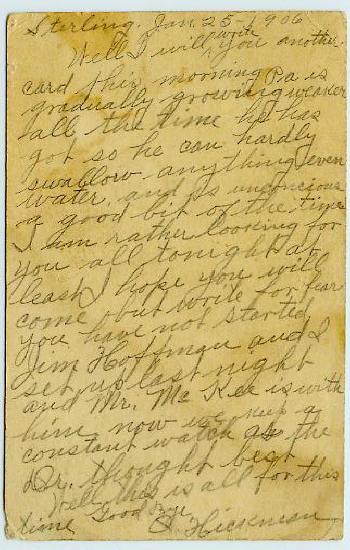 Sterling. Jan. 25 - 1906
Well I will write you another
card this morning Pa is
gradually growing weaker
all the time he has
got so he can hardly
swallow anything even
water, and is unconcious
a good bit of the time
I am rather looking for
you all tonight at
least I hope you will
come but write for fear
you have not started
Jim Hoffman and I
set up last night
and Mr. Mc Kee is with
him now we keep a
constant watch as the
Dr. thought best
Well this is all for this
time Good bye
Hickman